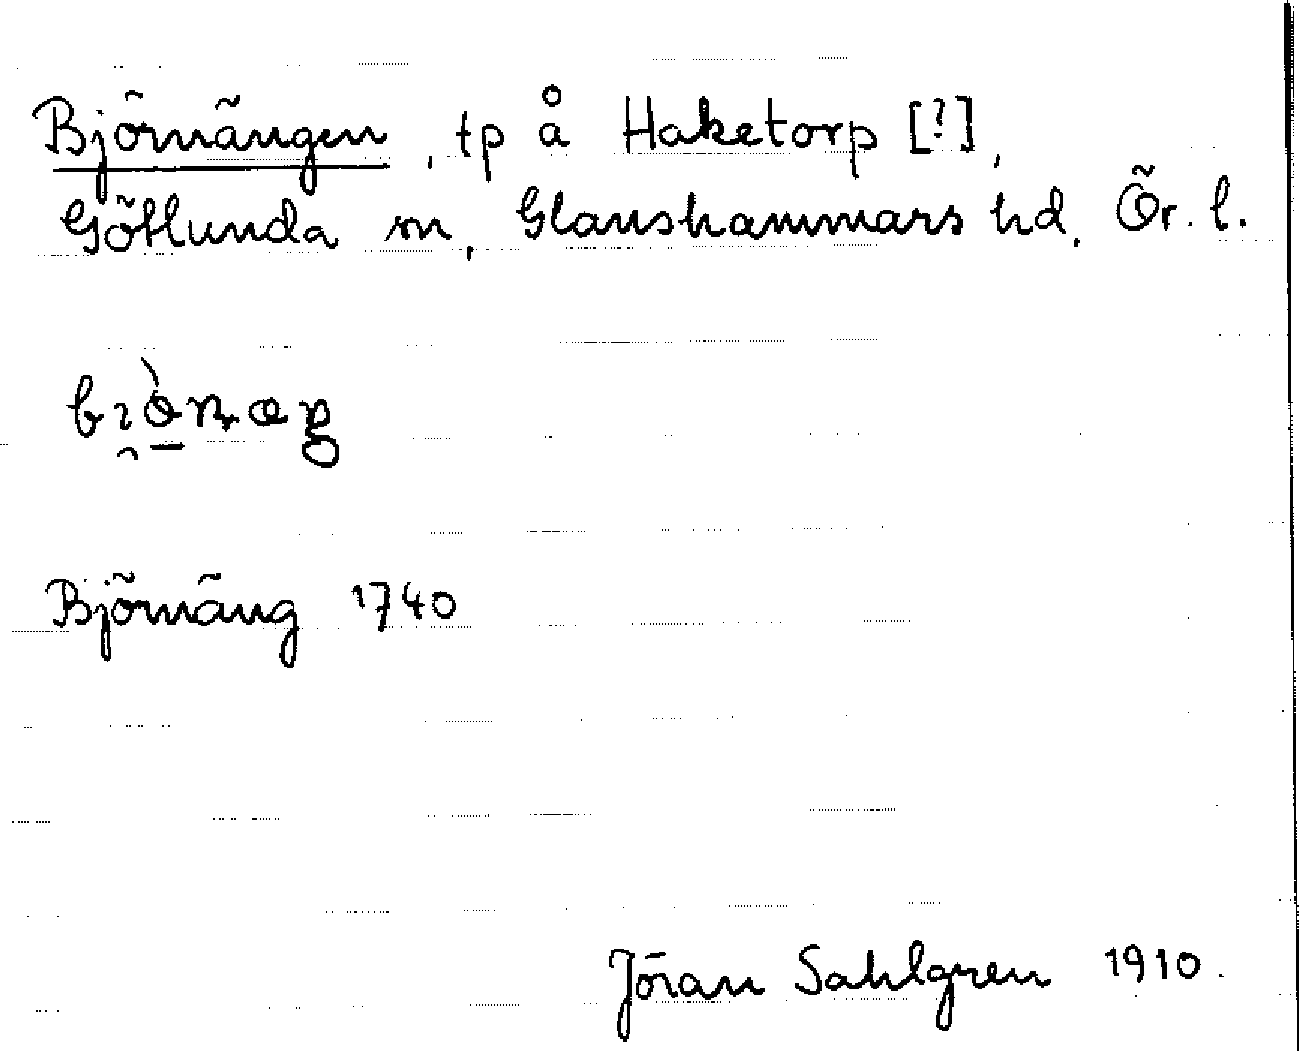 Björnängen, tp å Haketorp [!],
Götlunda sn, Glanshammars hd, Ör. l.
Björnäng 1740
Jöran Sahlgren 1910.